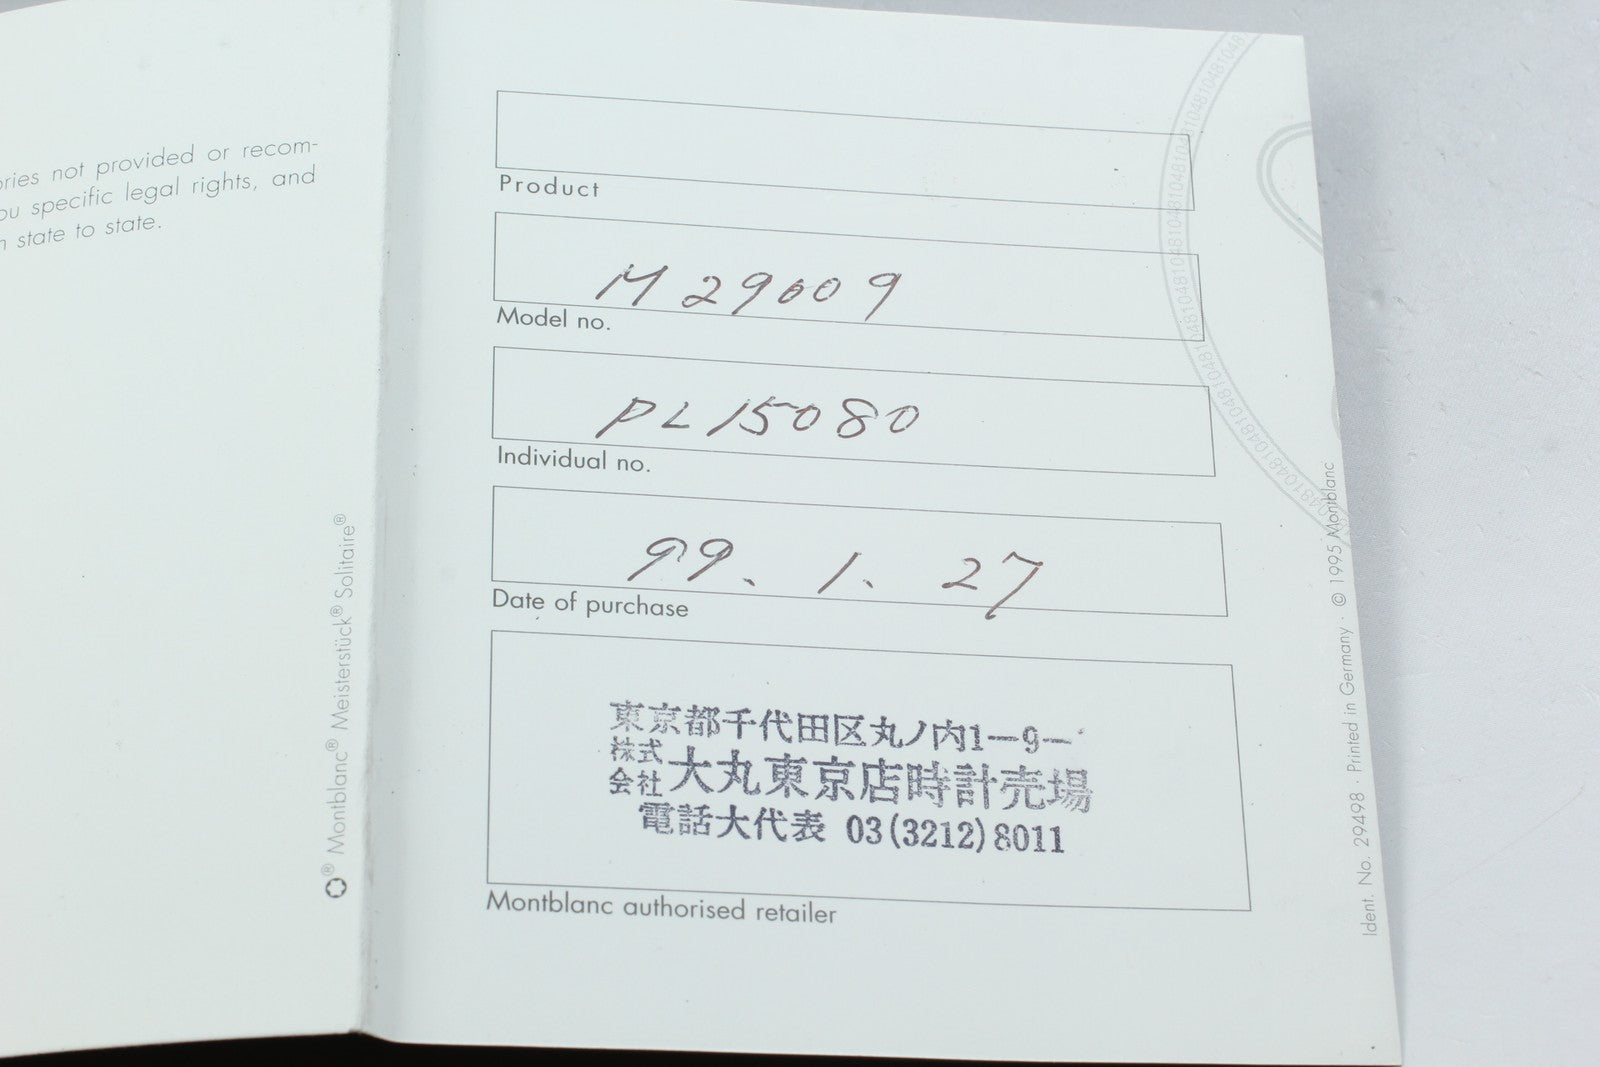 ries not provided or recom-
ou specific legal rights, and
state to state.
® Montblanc® Meisterstück® Solitaire®
Product
M 29009
Model no.
PL 15080
Individual no.
99. 1. 27
Date of purchase
東京都千代田区丸ノ内1-9-
株式会社 大丸東京店時計売場
電話大代表 03(3212)8011
Montblanc authorised retailer
Ident. No. 29498 · Printed in Germany · © 1995 Montblanc